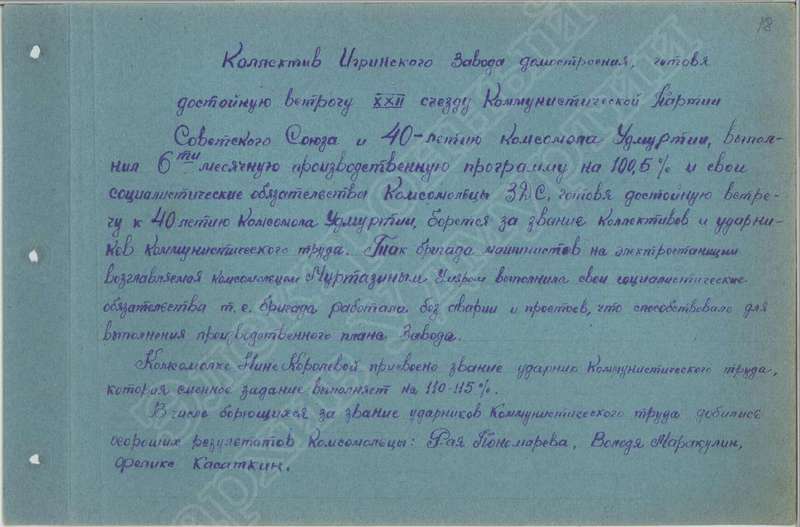 18
Коллектив Игринского Завода домостроения, готовя
достойную встречу XXII съезду Коммунистической Партии
Советского Союза и 40-летию комсомола Удмуртии, выпол-
нил 6ти месячную производственную программу на 100,5% и свои
социалистические обязательства Комсомольцы ЗДС, готовя достойную встре-
чу к 40летию Комсомола Удмуртии, борется за звание коллективов и ударни-
ков коммунистического труда. Так бригада машинистов на электростанции
возглавляемая комсомольцем Муртазиным выполнила свои социалистические
обязательства т.е. бригада работала без аварии и простоев, что способствовало для
выполнения производственного плана Завода.
Комсомолке Нине Королевой присвоено звание ударник Коммунистического труда,
которая сменное задание выполняет на 110-115%.
В числе борющихся за звание ударников Коммунистического труда добились
хороших результатов Комсомольцы: Рая Пономарева, Володя Маракулин,
Феликс Касаткин.